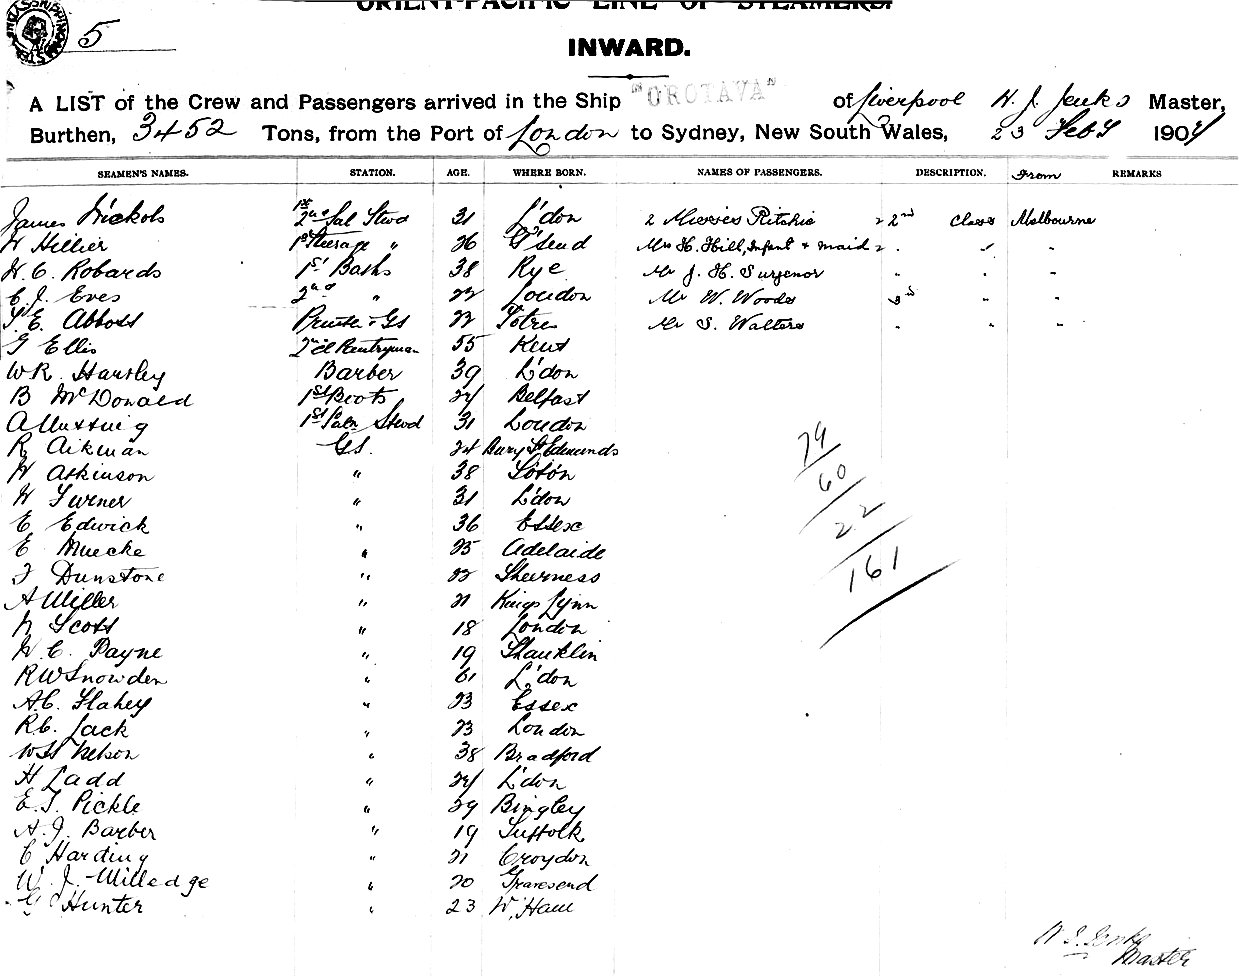 ORIENT-PACIFIC LINE OF STEAMERS.
5
INWARD.
A LIST of the Crew and Passengers arrived in the Ship "OROTAVA" of Liverpool H. J. Jenks Master,
Burthen, 3452 Tons, from the Port of London to Sydney, New South Wales, 23 Feby 1904
SEAMEN'S NAMES. STATION. AGE. WHERE BORN. NAMES OF PASSENGERS. DESCRIPTION. From REMARKS
James Nickols 2nd Sal Stwd 31 L'don 2 Misses Ritchie 2 2nd Class Melbourne
W Hillier Steerage " 26 G'send Mrs H. Hill, Infant & maid 2 . " "
H. C. Robards 1st Baths 38 Rye Mr J. H. Surjenor " " "
C. J. Eves 2nd " 22 London Mr W. Woods 3rd " "
E. Abbott GS 22 Mr S. Walters " " "
G Ellis 2nd Pantryman 55 Kent
W R. Hansley Barber 39 L'don
B McDonald 1st Boots 24 Belfast
A 1st Saln Stwd 31 London
R. Aikman GS. 24 Bury St Edmunds
W Atkinson " 38 Soton
W Turner " 31 L'don
E Edwick " 36 Essex
E Muecke " 25 Adelaide
J Dunstone " 22 Sheerness
A Miller " 21 Kings Lynn
W Scott " 18 London
W. C. Payne " 19 Shanklin
R W Snowden " 61 L'don
A.C. Flahey " 23 Essex
R C. Jack " 23 London
W H Nelson " 38 Bradford
H Ladd " 24 L'don
E. T. Pickle " 29 Bingley
A. J. Barber " 19 Suffolk
C Harding " 21 Croydon
W. J. Milledge " 20 Gravesend
G Hunter " 23 W. Ham
79
60
22
161
H. J. Jenks
Master